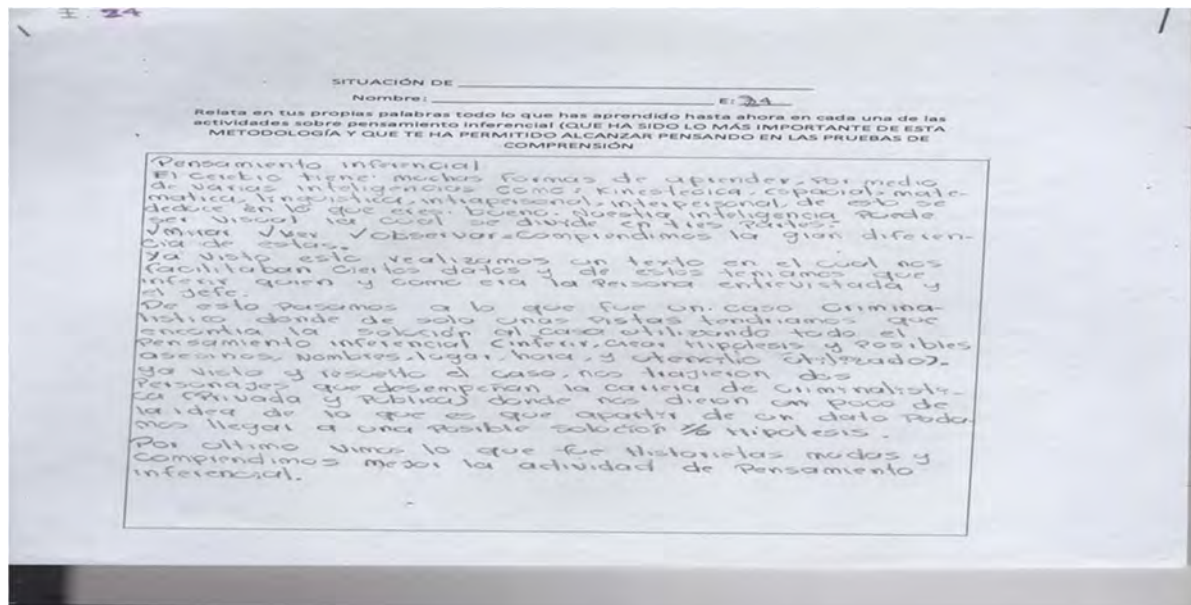 I. 24
SITUACIÓN DE
Nombre: E: 24
Relata en tus propias palabras todo lo que has aprendido hasta ahora en cada una de las
actividades sobre pensamiento inferencial (QUE HA SIDO LO MÁS IMPORTANTE DE ESTA
METODOLOGÍA Y QUE TE HA PERMITIDO ALCANZAR PENSANDO EN LAS PRUEBAS DE
COMPRENSIÓN
Pensamiento inferencial
El cerebro tiene muchas formas de aprender, por medio
de varias inteligencias como: Kinestecica, espacial, mate-
matica, linguistica, intrapersonal, interpersonal, de esto se
deduce en lo que eres bueno. Nuestra inteligencia puede
ser visual la cual se divide en tres partes:
√mirar √ver √observar. Comprendimos la gran diferen-
cia de estas.
Ya visto esto realizamos un texto en el cual nos
facilitaban ciertos datos y de estos teniamos que
inferir quien y como era la persona entrevistada y
el jefe.
De esto pasamos a lo que fue un caso crimina-
listico donde de solo unas pistas tendriamos que
encontra la solución al caso utilizando todo el
pensamiento inferencial (inferir, crear Hipotesis y posibles
asesinos, nombres, lugar, hora, y utencilio utilizado).
ya visto y resuelto el caso, nos trajieron dos
personajes que desempeñan la carrera de criminalisti-
ca (privada y publica) donde nos dieron un poco de
la idea de lo que es que apartir de un dato poda-
mos llegar a una posible solución y/o Hipotesis.
Por ultimo vimos lo que fue Historietas mudas y
comprendimos mejor la actividad de Pensamiento
inferencial.